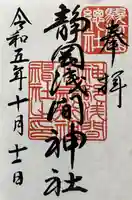 奉拝
静岡浅間神社
令和五年十月十一日